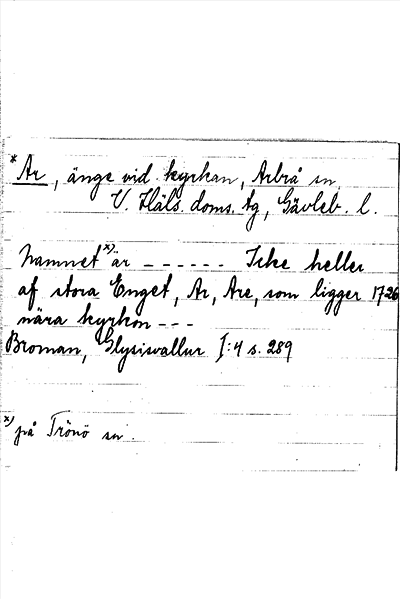 *Ar, änge vid kyrkan, Arbrå sn.
V. Häls. doms. tg, Gävleb. l.
Namnet x) är – – – – – – Icke heller
af stora Enget, Ar, Are, som ligger 1726
nära kyrkon – – –
Broman, Glysisvallur I:4 s. 289
x) på Trönö sn.